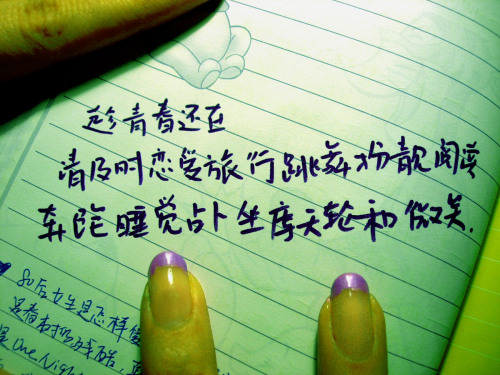 趁青春还在
请及时恋爱旅行跳舞扮靓阅读
奔跑睡觉占卜坐摩天轮和微笑.
80后女生是怎样
One Night